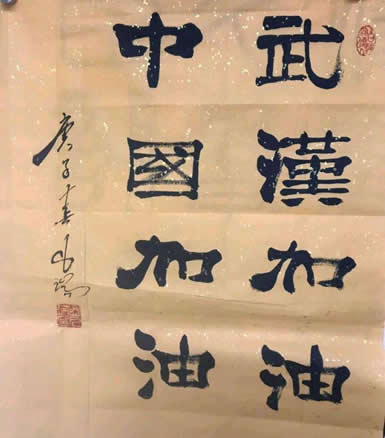 武漢加油
中國加油
庚子春